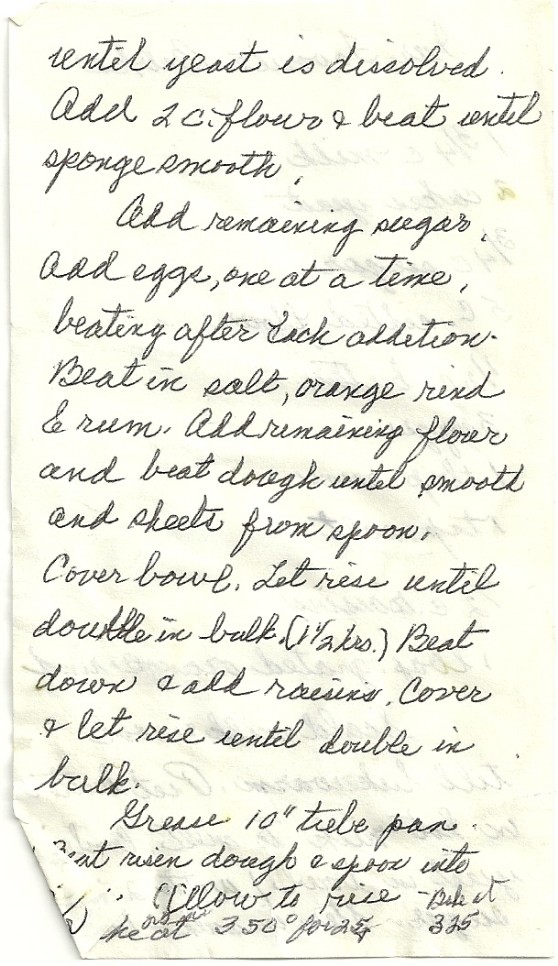 until yeast is dissolved.
Add 2 c. flour & beat until
sponge smooth.
Add remaining sugar.
Add eggs, one at a time,
beating after each addition.
Beat in salt, orange rind
& rum. Add remaining flour
and beat dough until smooth
and sheets from spoon.
Cover bowl. Let rise until
double in bulk. (1 1/2 hrs.) Beat
down & add raisins. Cover
& let rise until double in
bulk.
Grease 10" tube pan.
risen dough & spoon into
Allow to rise - Bake at
heat 350° for 325